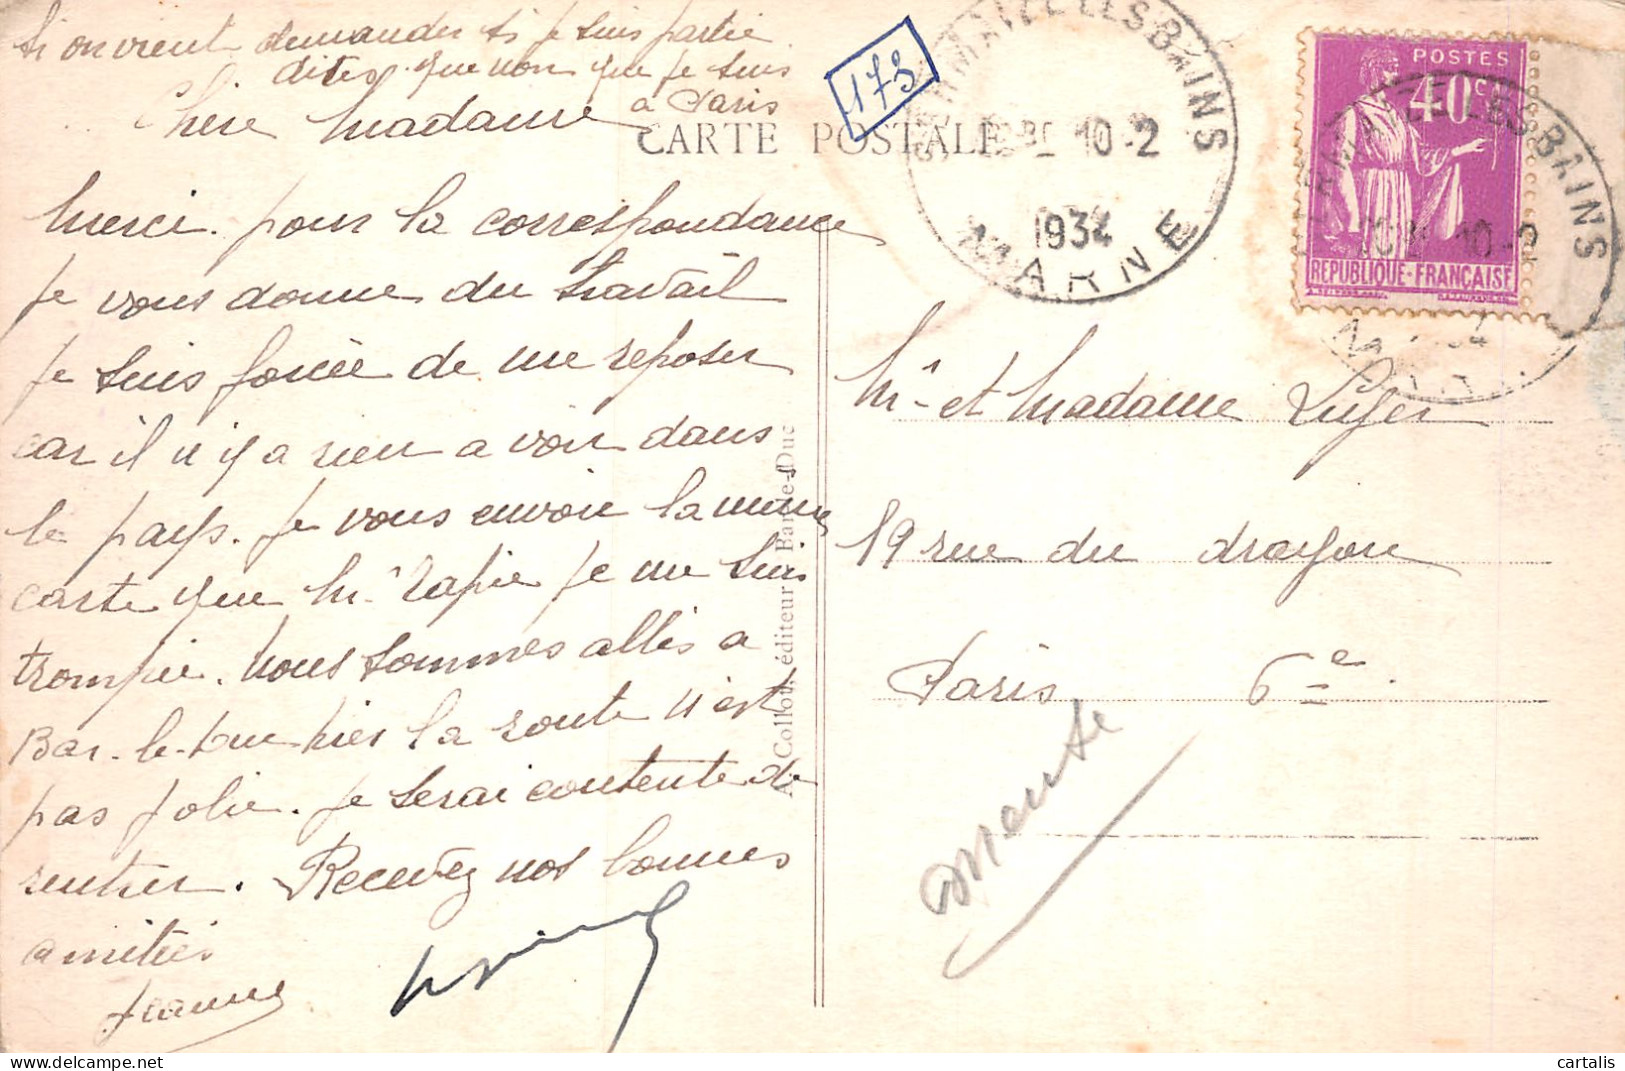 Si on vient demander si je suis partie
dites que non que je suis
a Paris
Chère Madame
173
CARTE POSTALE
SERMAIZE LES BAINS
10-2
1934
MARNE
POSTES
40 C
REPUBLIQUE-FRANÇAISE
SERMAIZE LES BAINS
10-2
Merci pour la correspondance
Je vous donne du travail
Je suis forcée de me reposer
car il n'y a rien a voir dans
le pays. Je vous envoie la même
carte que Mr Papie je me suis
trompée. Nous sommes allés a
Bar-le-Duc hier la route n'est
pas jolie. Je serai contente de
rentrer. Recevez nos bonnes
amitiés
Jeanne
A. Collot, éditeur Bar-le-Duc
Mr et Madame
19 rue du dragon
Paris 6e
Marne